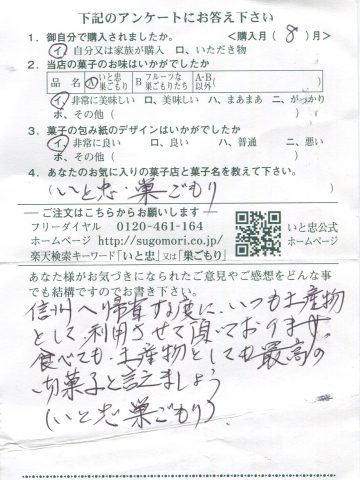 下記のアンケートにお答え下さい
1. 御自分で購入されましたか。 <購入月( 8 )月>
イ、自分又は家族が購入 ロ、いただき物
2. 当店の菓子のお味はいかがでしたか
品 名 A いと忠巣ごもり B フルーツな巣ごもりたち A・B以外( )
イ、非常に美味しい ロ、美味しい ハ、まあまあ ニ、がっかり
ホ、その他( )
3. 菓子の包み紙のデザインはいかがでしたか
イ、非常に良い ロ、良い ハ、普通 ニ、悪い
ホ、その他( )
4. あなたのお気に入りの菓子店と菓子名を教えて下さい。
(いと忠 巣ごもり )
ご注文はこちらからお願いします
フリーダイヤル 0120-461-164
ホームページ http://sugomori.co.jp/
楽天検索キーワード「いと忠」又は「巣ごもり」
いと忠公式
ホームページ
あなた様がお気づきになられたご意見やご感想をどんな事
でも結構ですのでお書き下さい。
信州へ帰省する度に、いつも土産物
として利用させて頂いております。
食べても、土産物としても最高の
お菓子と言えましょう
(いと忠 巣ごもり)